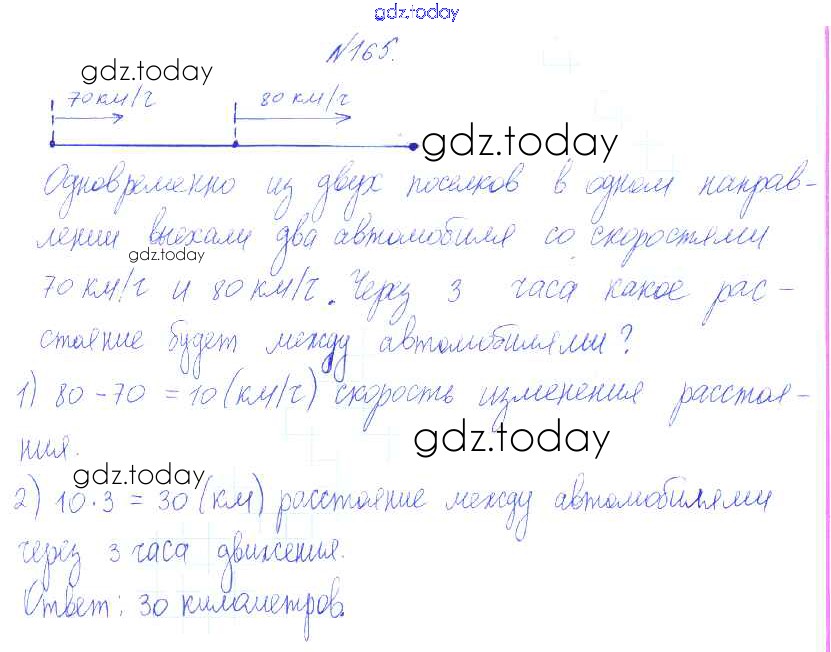 gdz.today
№165.
gdz.today
70 км/ч 80 км/ч
gdz.today
Одновременно из двух поселков в одном направ-
лении выехали два автомобиля со скоростями
gdz.today
70 км/ч и 80 км/ч. Через 3 часа какое рас-
стояние будет между автомобилями?
1) 80-70 = 10 (км/ч) скорость изменения расстоя-
ния.
gdz.today
gdz.today
2) 10·3 = 30 (км) расстояние между автомобилями
через 3 часа движения.
Ответ: 30 километров.